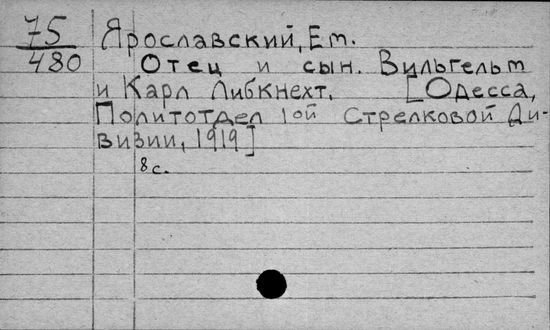 75
480
Ярославский, Ем.
Отец и сын. Вильгельм
и Карл Либкнехт. [Одесса,
Политотдел 1ой Стрелковой Ди-
визии, 1919]
8с.